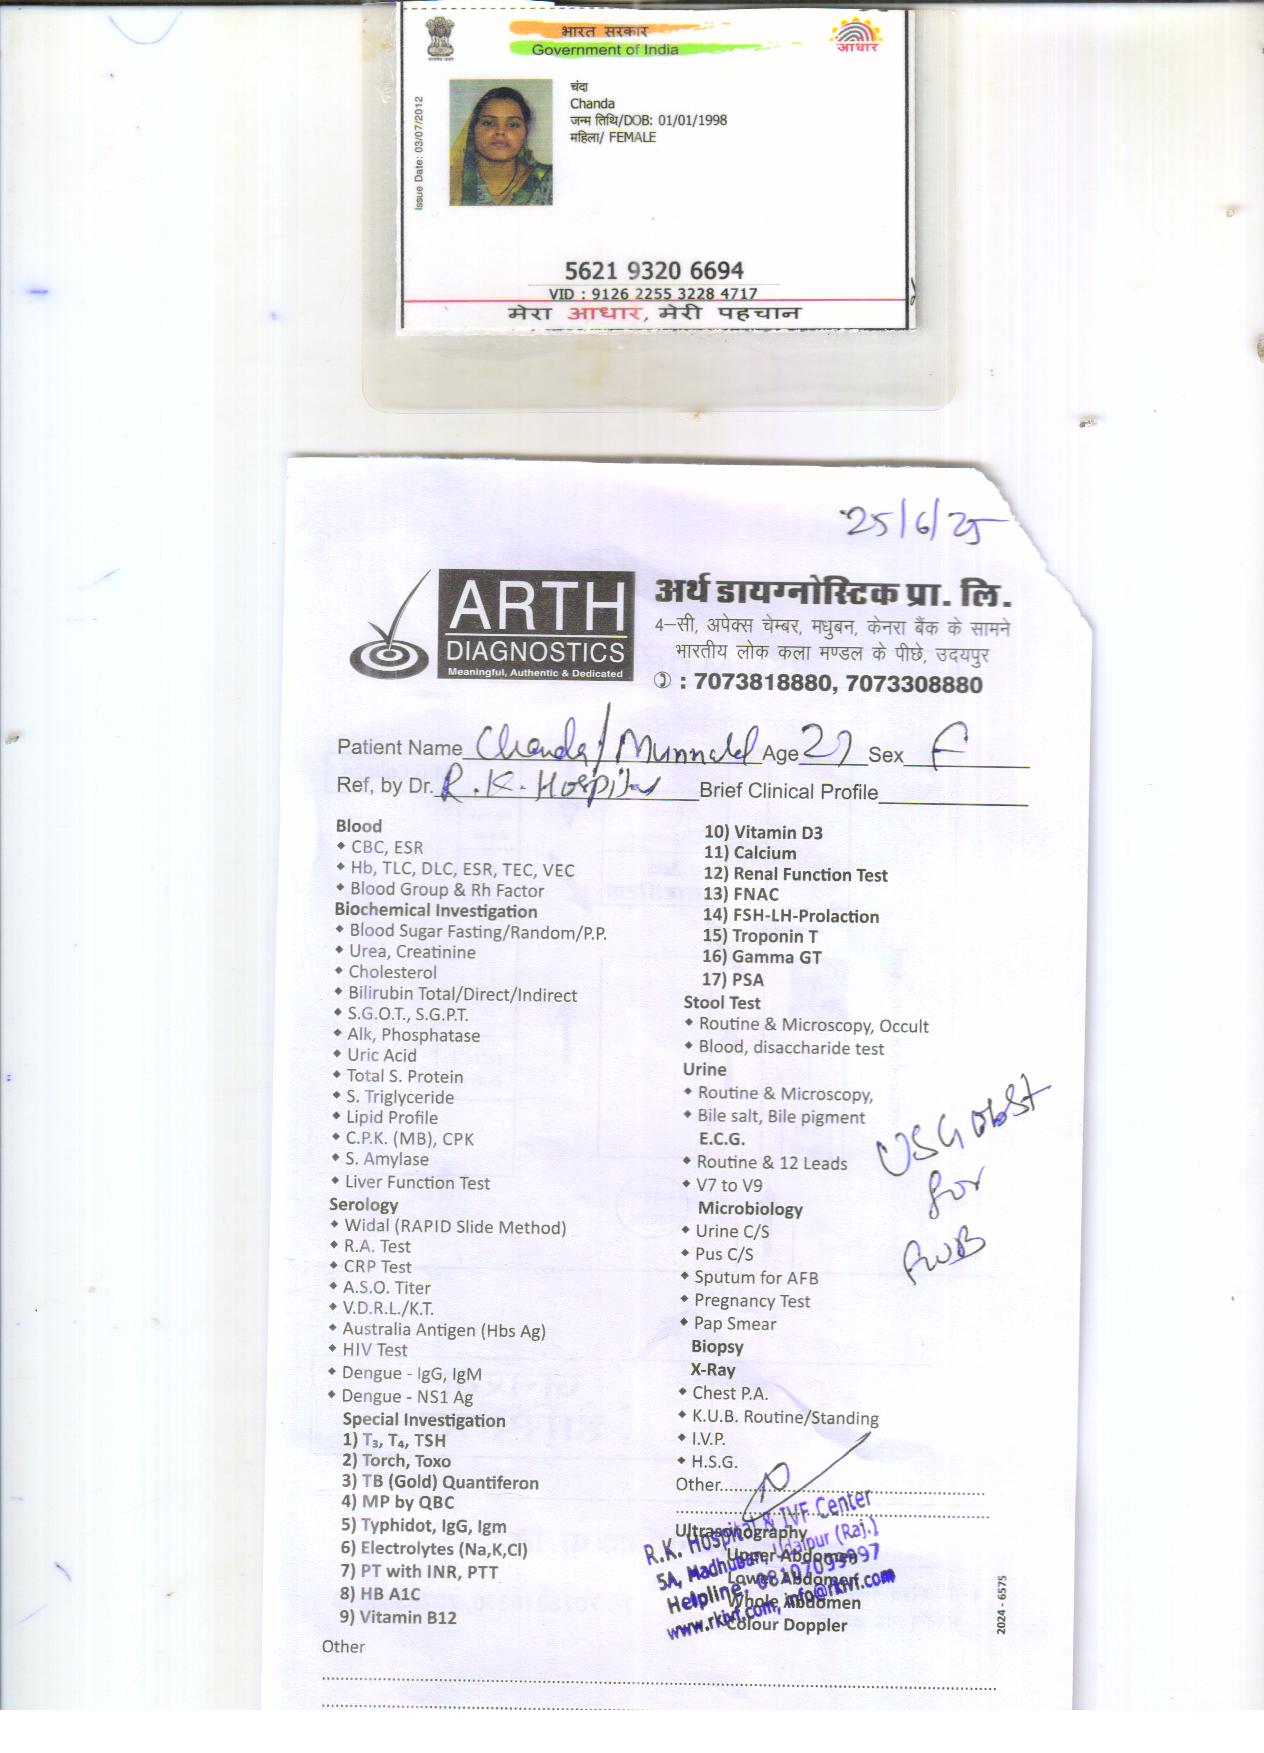 भारत सरकार
Government of India
आधार
Issue Date: 03/07/2012
चंदा
Chanda
जन्म तिथि/DOB: 01/01/1998
महिला/ FEMALE
5621 9320 6694
VID : 9126 2255 3228 4717
मेरा आधार, मेरी पहचान
25/6/25
ARTH
DIAGNOSTICS
Meaningful, Authentic & Dedicated
अर्थ डायग्नोस्टिक प्रा. लि.
4–सी, अपेक्स चेम्बर, मधुबन, केनरा बैंक के सामने
भारतीय लोक कला मण्डल के पीछे, उदयपुर
: 7073818880, 7073308880
Patient Name Chanda/ Munnalal Age 27 Sex F
Ref, by Dr. R.K. Hospital Brief Clinical Profile
Blood
• CBC, ESR
• Hb, TLC, DLC, ESR, TEC, VEC
• Blood Group & Rh Factor
Biochemical Investigation
• Blood Sugar Fasting/Random/P.P.
• Urea, Creatinine
• Cholesterol
• Bilirubin Total/Direct/Indirect
• S.G.O.T., S.G.P.T.
• Alk, Phosphatase
• Uric Acid
• Total S. Protein
• S. Triglyceride
• Lipid Profile
• C.P.K. (MB), CPK
• S. Amylase
• Liver Function Test
Serology
• Widal (RAPID Slide Method)
• R.A. Test
• CRP Test
• A.S.O. Titer
• V.D.R.L./K.T.
• Australia Antigen (Hbs Ag)
• HIV Test
• Dengue - IgG, IgM
• Dengue - NS1 Ag
Special Investigation
1) T3, T4, TSH
2) Torch, Toxo
3) TB (Gold) Quantiferon
4) MP by QBC
5) Typhidot, IgG, Igm
6) Electrolytes (Na,K,Cl)
7) PT with INR, PTT
8) HB A1C
9) Vitamin B12
Other
10) Vitamin D3
11) Calcium
12) Renal Function Test
13) FNAC
14) FSH-LH-Prolaction
15) Troponin T
16) Gamma GT
17) PSA
Stool Test
• Routine & Microscopy, Occult
• Blood, disaccharide test
Urine
• Routine & Microscopy,
• Bile salt, Bile pigment
E.C.G.
• Routine & 12 Leads
• V7 to V9
Microbiology
• Urine C/S
• Pus C/S
• Sputum for AFB
• Pregnancy Test
• Pap Smear
Biopsy
X-Ray
• Chest P.A.
• K.U.B. Routine/Standing
• I.V.P.
• H.S.G.
Other
Ultrasonography
Upper Abdomen
Lower Abdomen
Whole Abdomen
Colour Doppler
USG obst
for
FWB
R.K. Hospital & IVF Center
5A, Madhuban, Udaipur (Raj.)
Helpline:
www.rkivf.com, info@rkivf.com
2024 - 6575